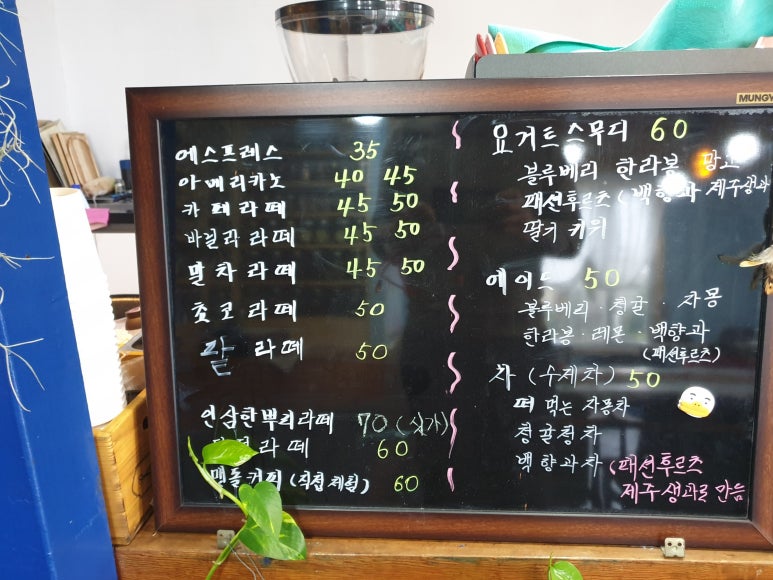 MUNGY
에스프레스 35
아메리카노 40 45
카페라떼 45 50
바닐라라떼 45 50
말차라떼 45 50
초코라떼 50
라떼 50
인삼한뿌리라떼 70 (싯가)
라떼 60
맷돌커피 (직접체험) 60
요거트스무디 60
블루베리 한라봉 망고
패션후르츠 (백향과 제주생과
딸기 키위
에이드 50
블루베리 · 청귤 · 자몽
한라봉 · 레몬 · 백향과
(패션후르츠)
차 (수제차) 50
떠 먹는 자몽차
청귤청차
백향과차 (패션후르츠
제주생과로 만듬